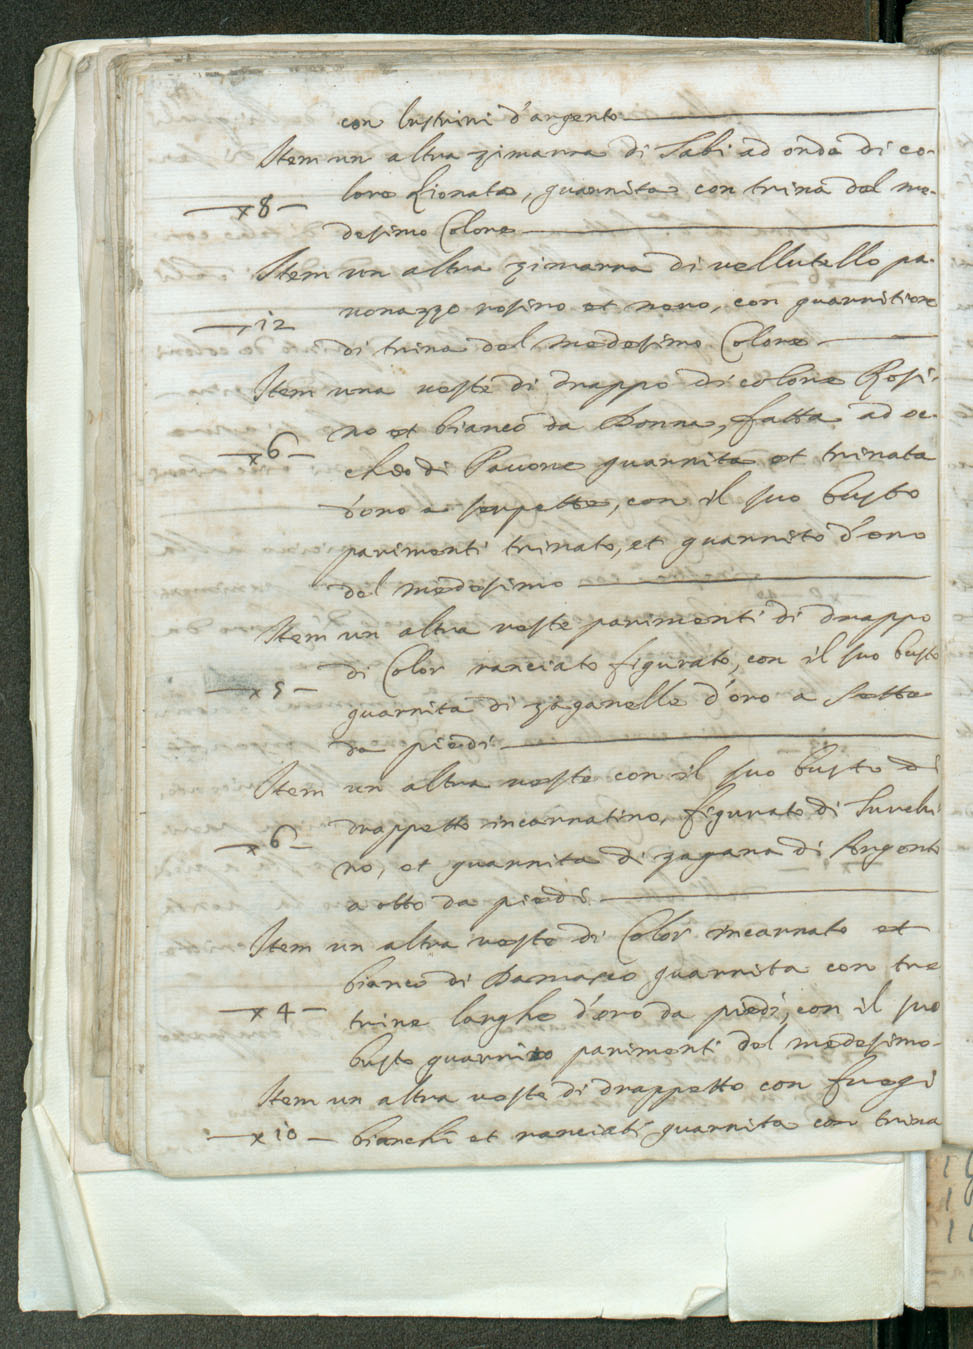 con lustrini d'argento
Item un altra zimarra di Tabi ad onde di co-
lore Lionato, guarnita con trina del me-
—x 8—
desimo Colore
Item un altra zimarra di vellutello pa-
uonazzo rosino et nero, con guarnitione
—x 12
di trina del medesimo Colore
Item una veste di drappo di colore Rosi-
no et bianco da Donna, fatta ad oc-
—x 6—
chio di Pauone guarnita et trinata
d'oro a serpette, con il suo busto
parimenti trinato, et guarnito d'oro
del medesimo
Item un altra veste parimenti di drappo
di Color ranciato figurato, con il suo busto
—x 5—
guarnita di zaganelle d'oro a sette
da piedi
Item un altra veste con il suo busto di
drappetto incarnatino, figurato di Turchi
—x 6—
no, et guarnita di zagana di Argento
a otto da piedi
Item un altra veste di Color incarnato et
bianco di Damasco guarnita con tre
—x 4—
trine larghe d'oro da piedi, con il suo
busto guarnito parimenti del medesimo-
Item un altra veste di drappetto con fuogi
—x 10— bianchi et ranciati guarnita con trina